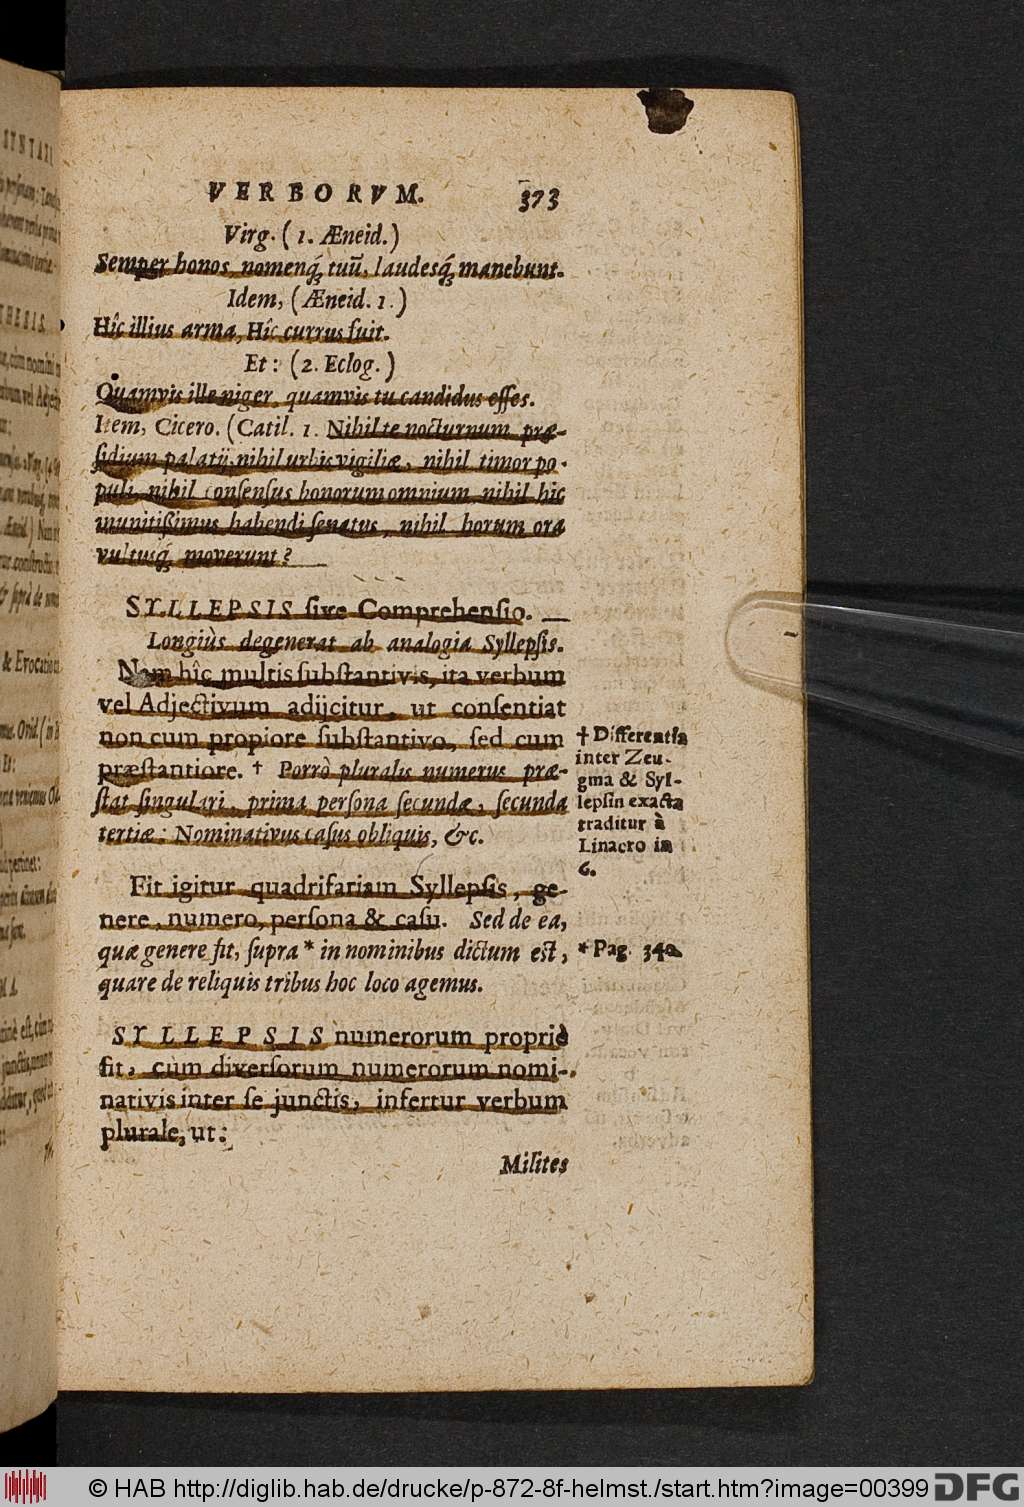 VERBORVM. 373
Virg. (1. Æneid.)
Semper honos, nomenq́; tuũ, laudesq́; manebunt.
Idem, (Æneid. 1.)
Hîc illius arma, Hîc currus fuit.
Et: (2. Eclog.)
Quamvis ille niger, quamvis tu candidus esses.
Item, Cicero. (Catil. 1. Nihil te nocturnum præ-
sidium palatij, nihil urbis vigiliæ, nihil timor po-
puli, nihil consensus bonorum omnium, nihil hic
munitißimus habendi senatus, nihil horum ora
vultusq́; moverunt?
SYLLEPSIS sive Comprehensio.
Longiùs degenerat ab analogia Syllepsis.
Nam hîc multis substantivis, ita verbum
vel Adjectivum adijcitur, ut consentiat
non cum propiore substantivo, sed cum
præstantiore. † Porrò pluralis numerus præ-
stat singulari, prima persona secundæ, secunda
tertiæ: Nominativus casus obliquis, &c.
† Differentia
inter Zeu-
gma & Syl-
lepsin exacta
traditur à
Linacro in
6.
Fit igitur quadrifariam Syllepsis, ge-
nere, numero, persona & casu. Sed de ea,
quæ genere fit, supra * in nominibus dictum est,
quare de reliquis tribus hoc loco agemus.
* Pag. 340.
SYLLEPSIS numerorum propriè
fit, cùm diversorum numerorum nomi-
nativis inter se junctis, infertur verbum
plurale, ut:
Milites
© HAB http://diglib.hab.de/drucke/p-872-8f-helmst./start.htm?image=00399
DFG